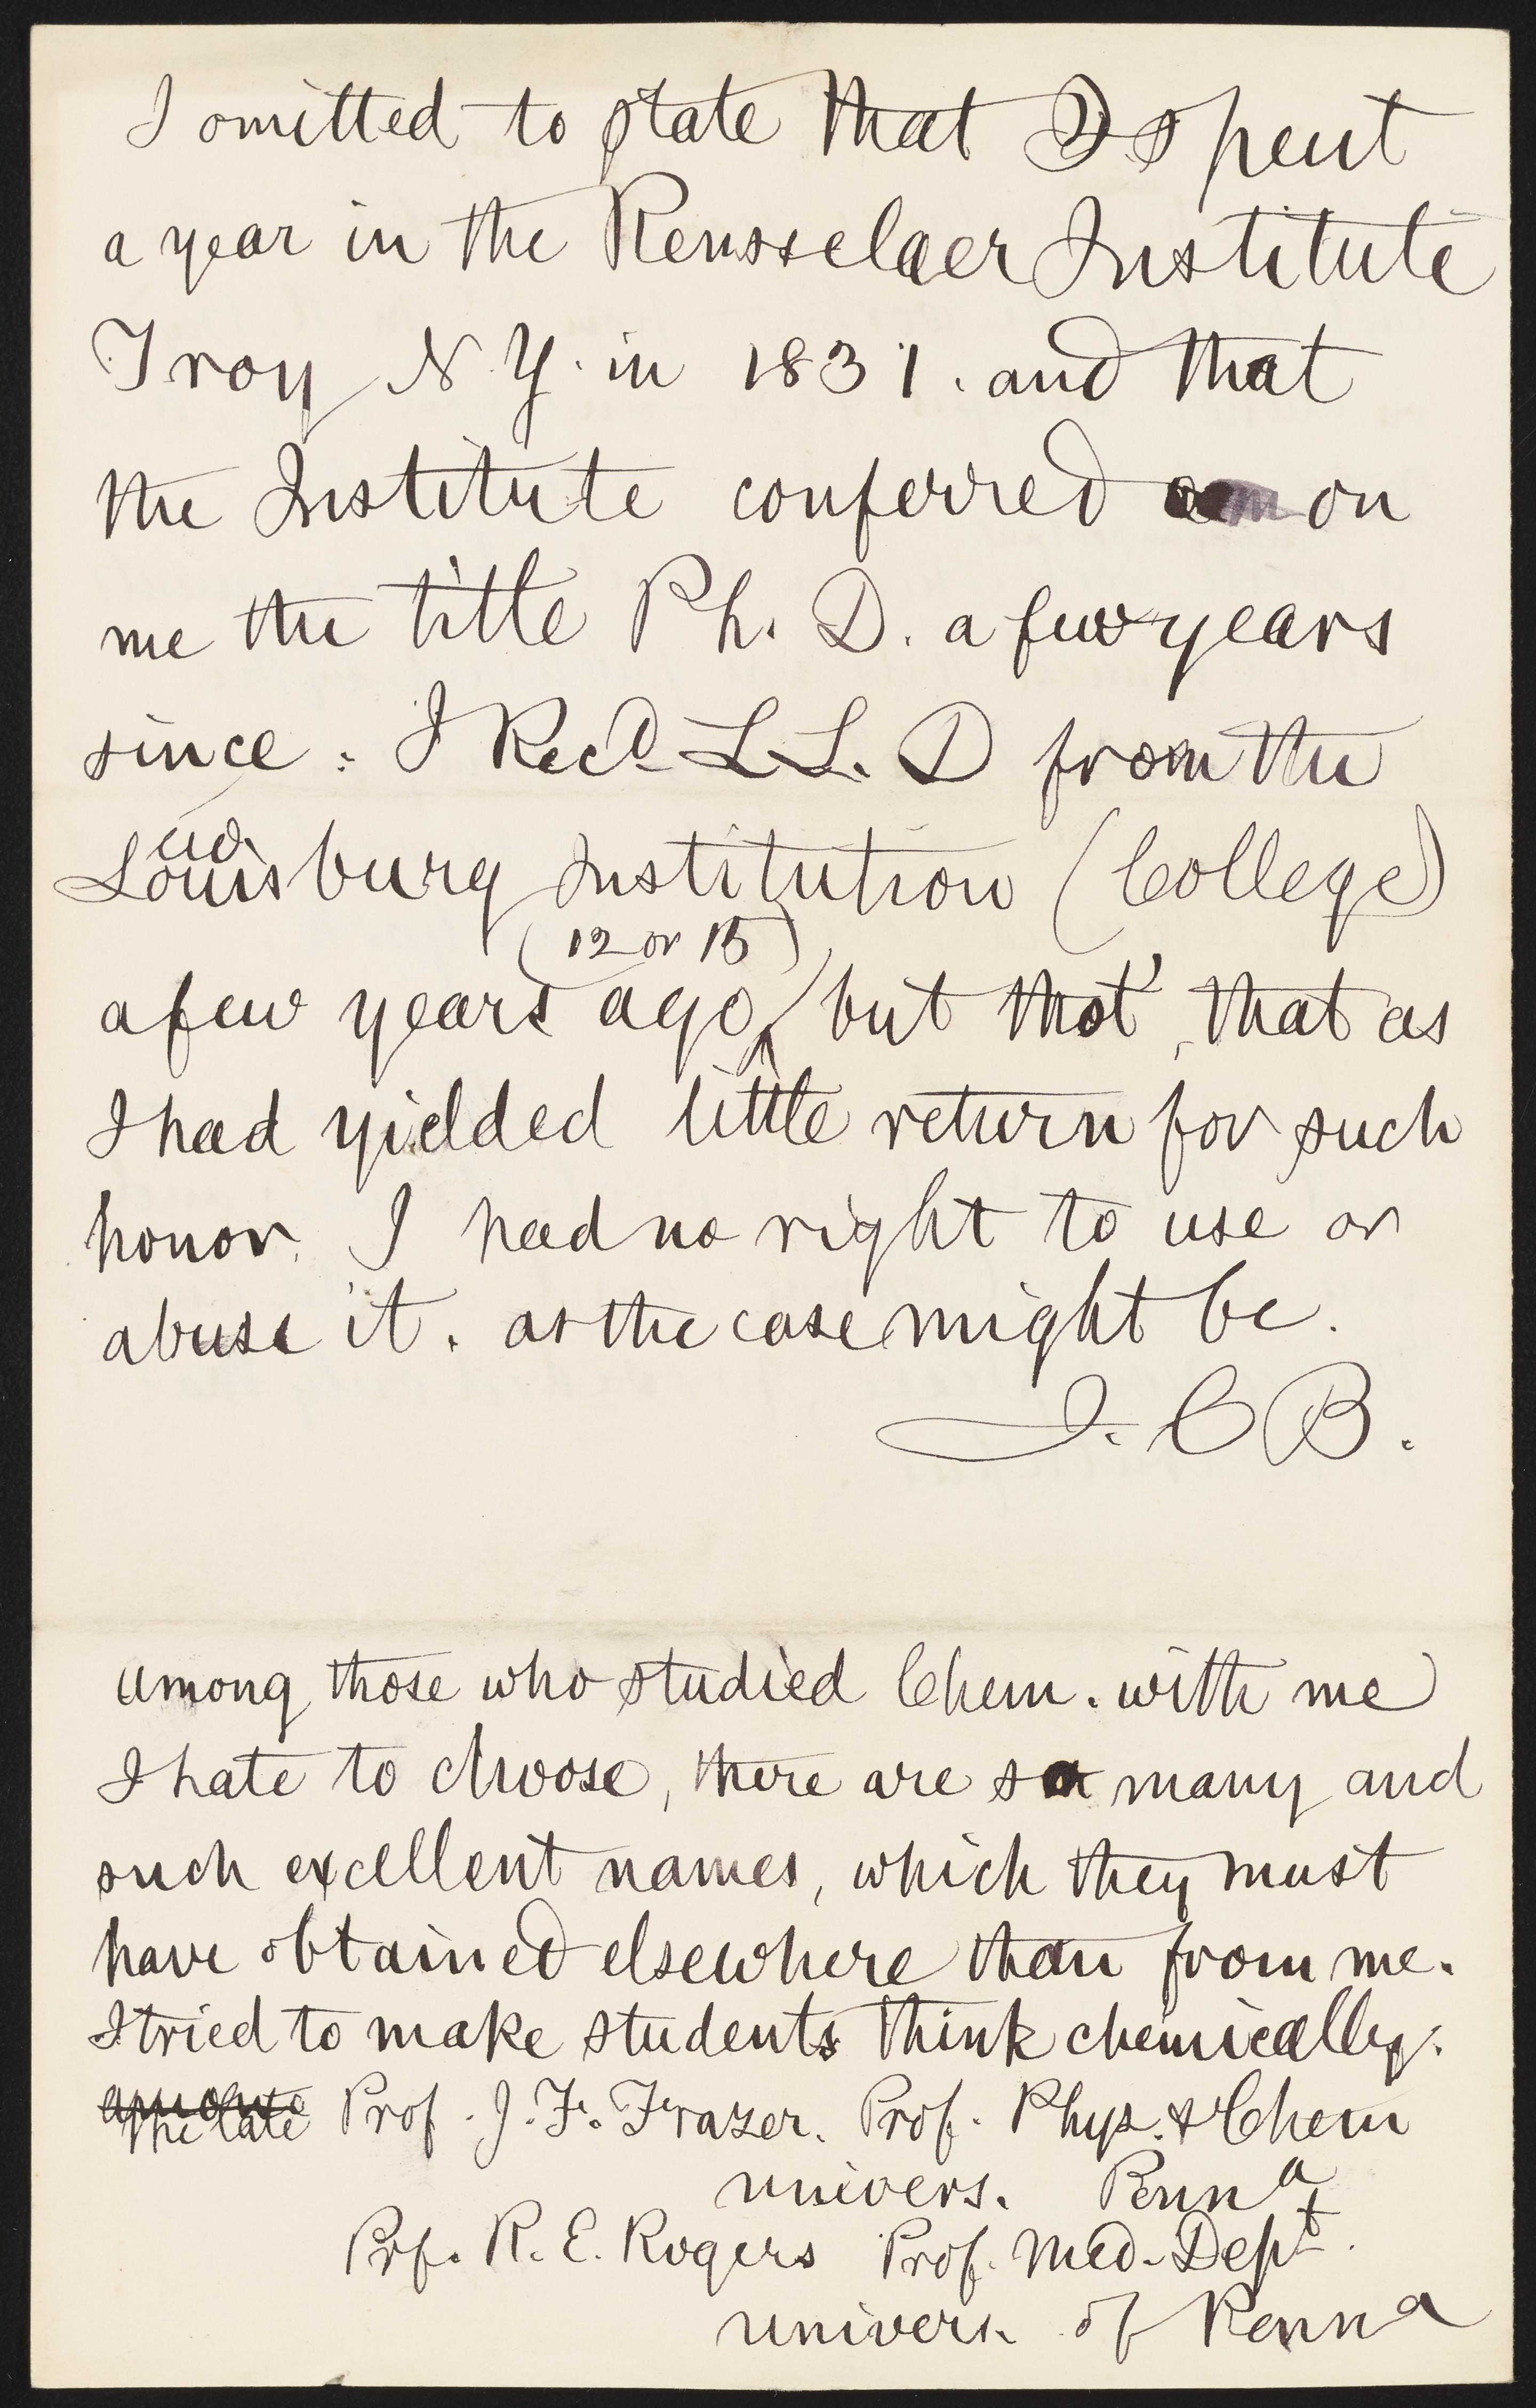 I omitted to state that I spent
a year in the Rensselaer Institute
Troy N Y. in 1831. and that
the Institute conferred on
me the title Ph. D. a few years
since: I Recd LL. D from the
ew
Louisburg Institution (College)
(12 or 15)
a few years ago, but thot', that as
I had yielded little return for such
honor. I had no right to use or
abuse it. as the case might be.
J. C B.
Among those who studied Chem. with me
I hate to choose, there are so many and
such excellent names, which they must
have obtained elsewhere than from me.
I tried to make students think chemically.
among The late Prof. J. F. Frazer. Prof. Phys. & Chem
univers. Penna
Prf. R. E. Rogers Prof. Med. Dept.
univers. of Penna